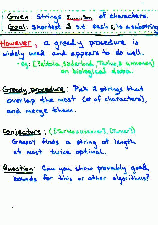 Given strings of characters.
Goal: shortest s.t. each is a substring
However, a greedy procedure is
widely used and appears to do well.
on biological data.
Greedy procedure: Pick 2 strings that
overlap the most (# of characters),
and merge them.
Conjecture:
Greedy finds a string of length
at most twice optimal.
Question: Can you show provably good
bounds for this or other algorithms?